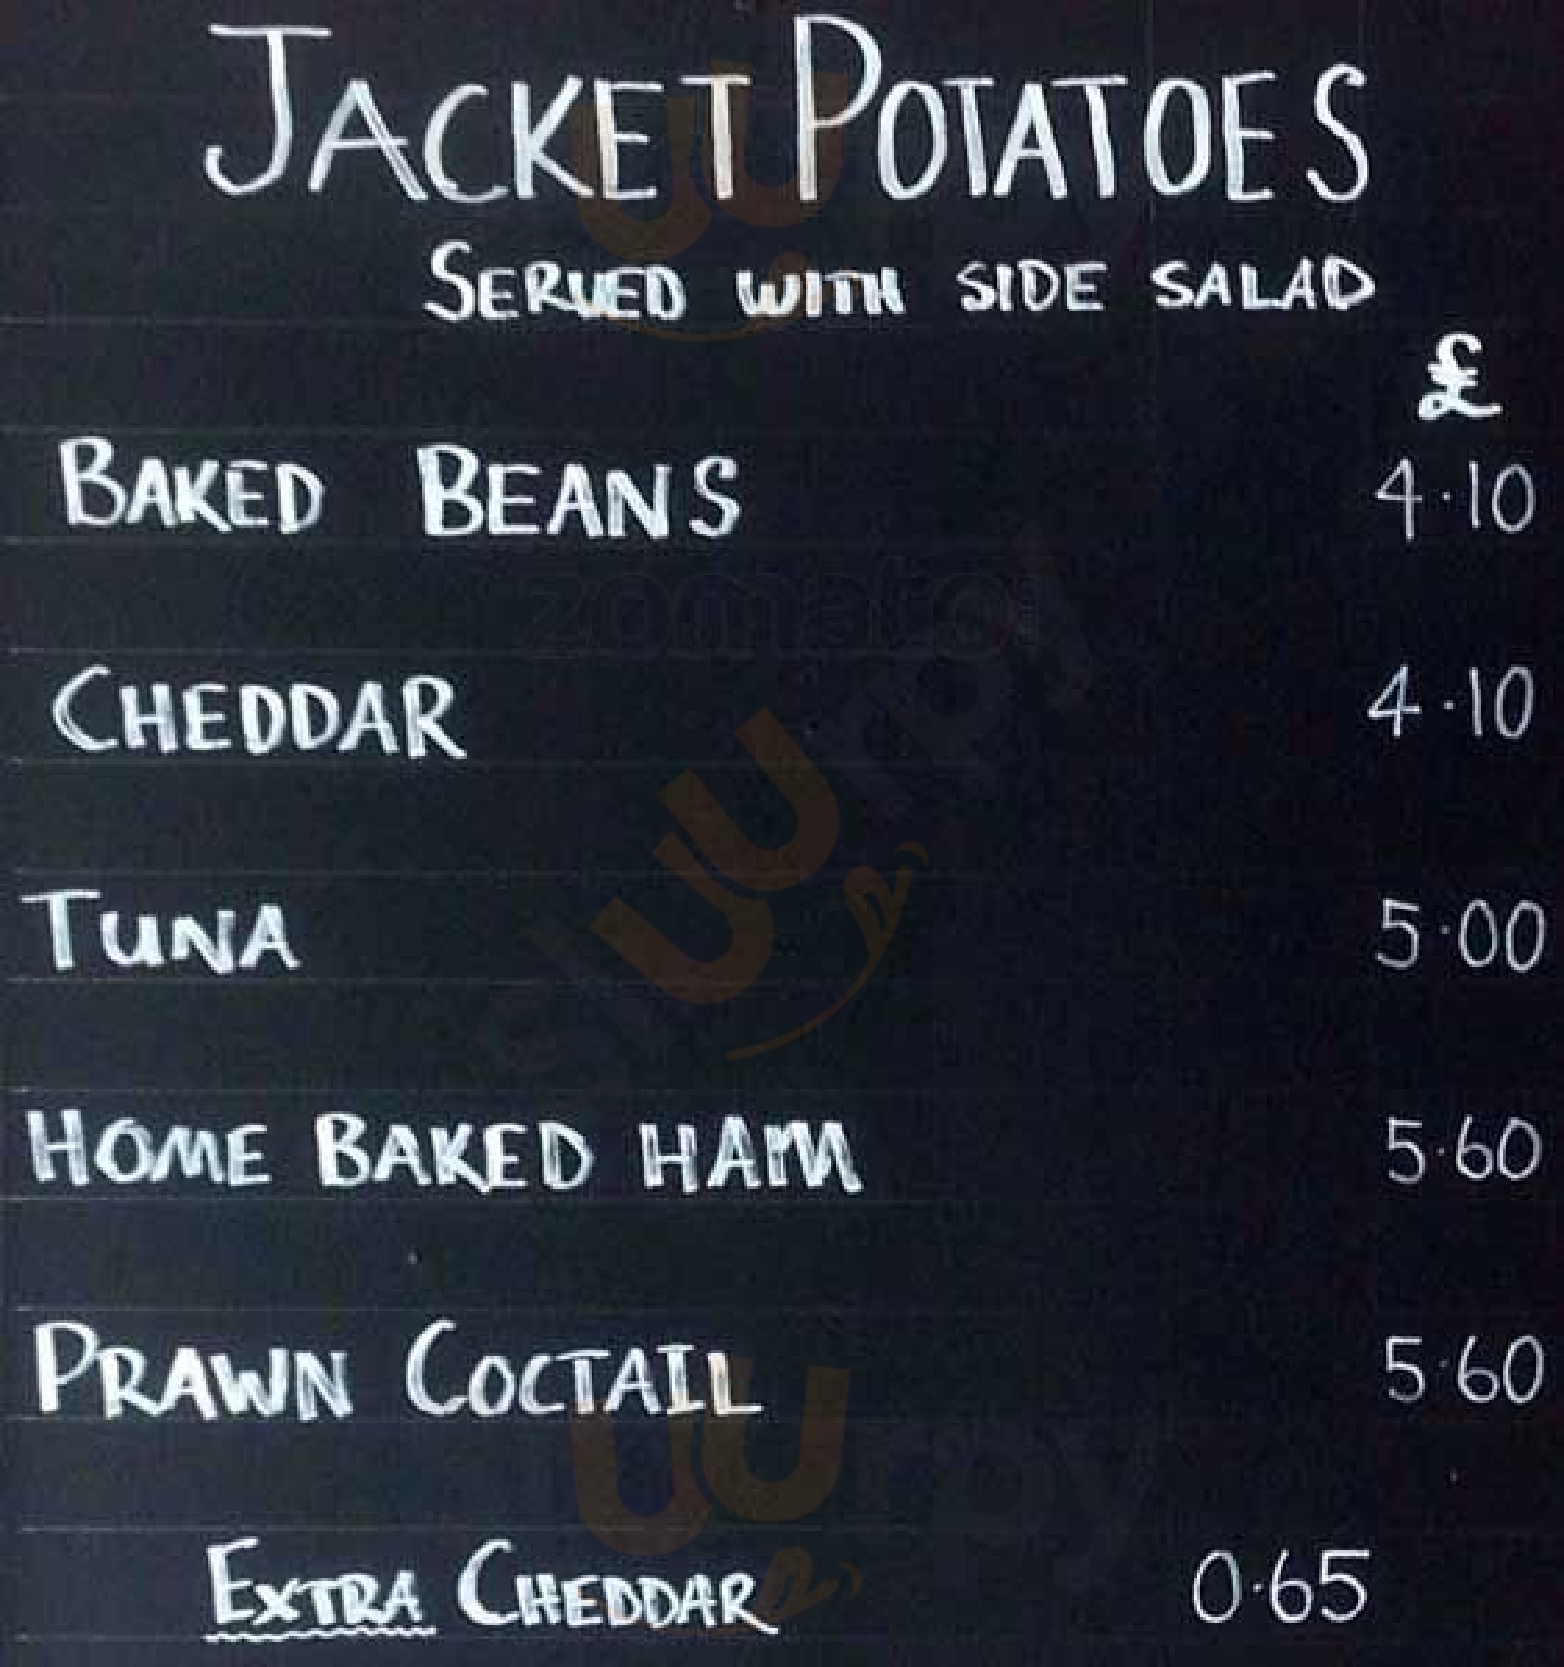 JACKET POTATOES
SERVED WITH SIDE SALAD
£
BAKED BEANS 4.10
CHEDDAR 4.10
TUNA 5.00
HOME BAKED HAM 5.60
PRAWN COCTAIL 5.60
EXTRA CHEDDAR 0.65
zomato